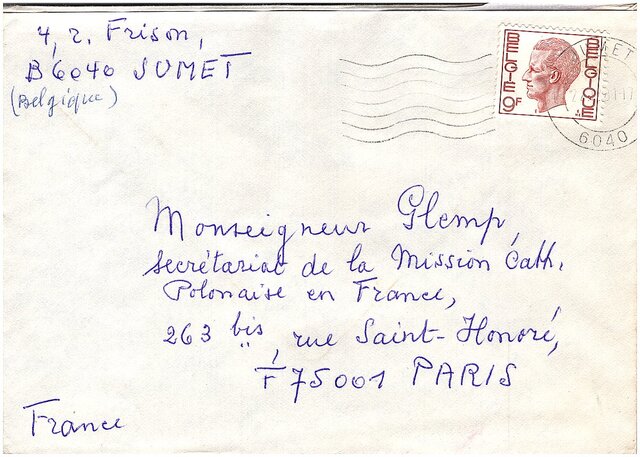 4, r. Frison,
B 6040 JUMET
(Belgique)
BELGIE 9F BELGIQUE
UMET
6040
Monseigneur Glemp,
secrétariat de la Mission Cath.
Polonaise en France,
263 bis, rue Saint-Honoré,
F 75001 PARIS
France